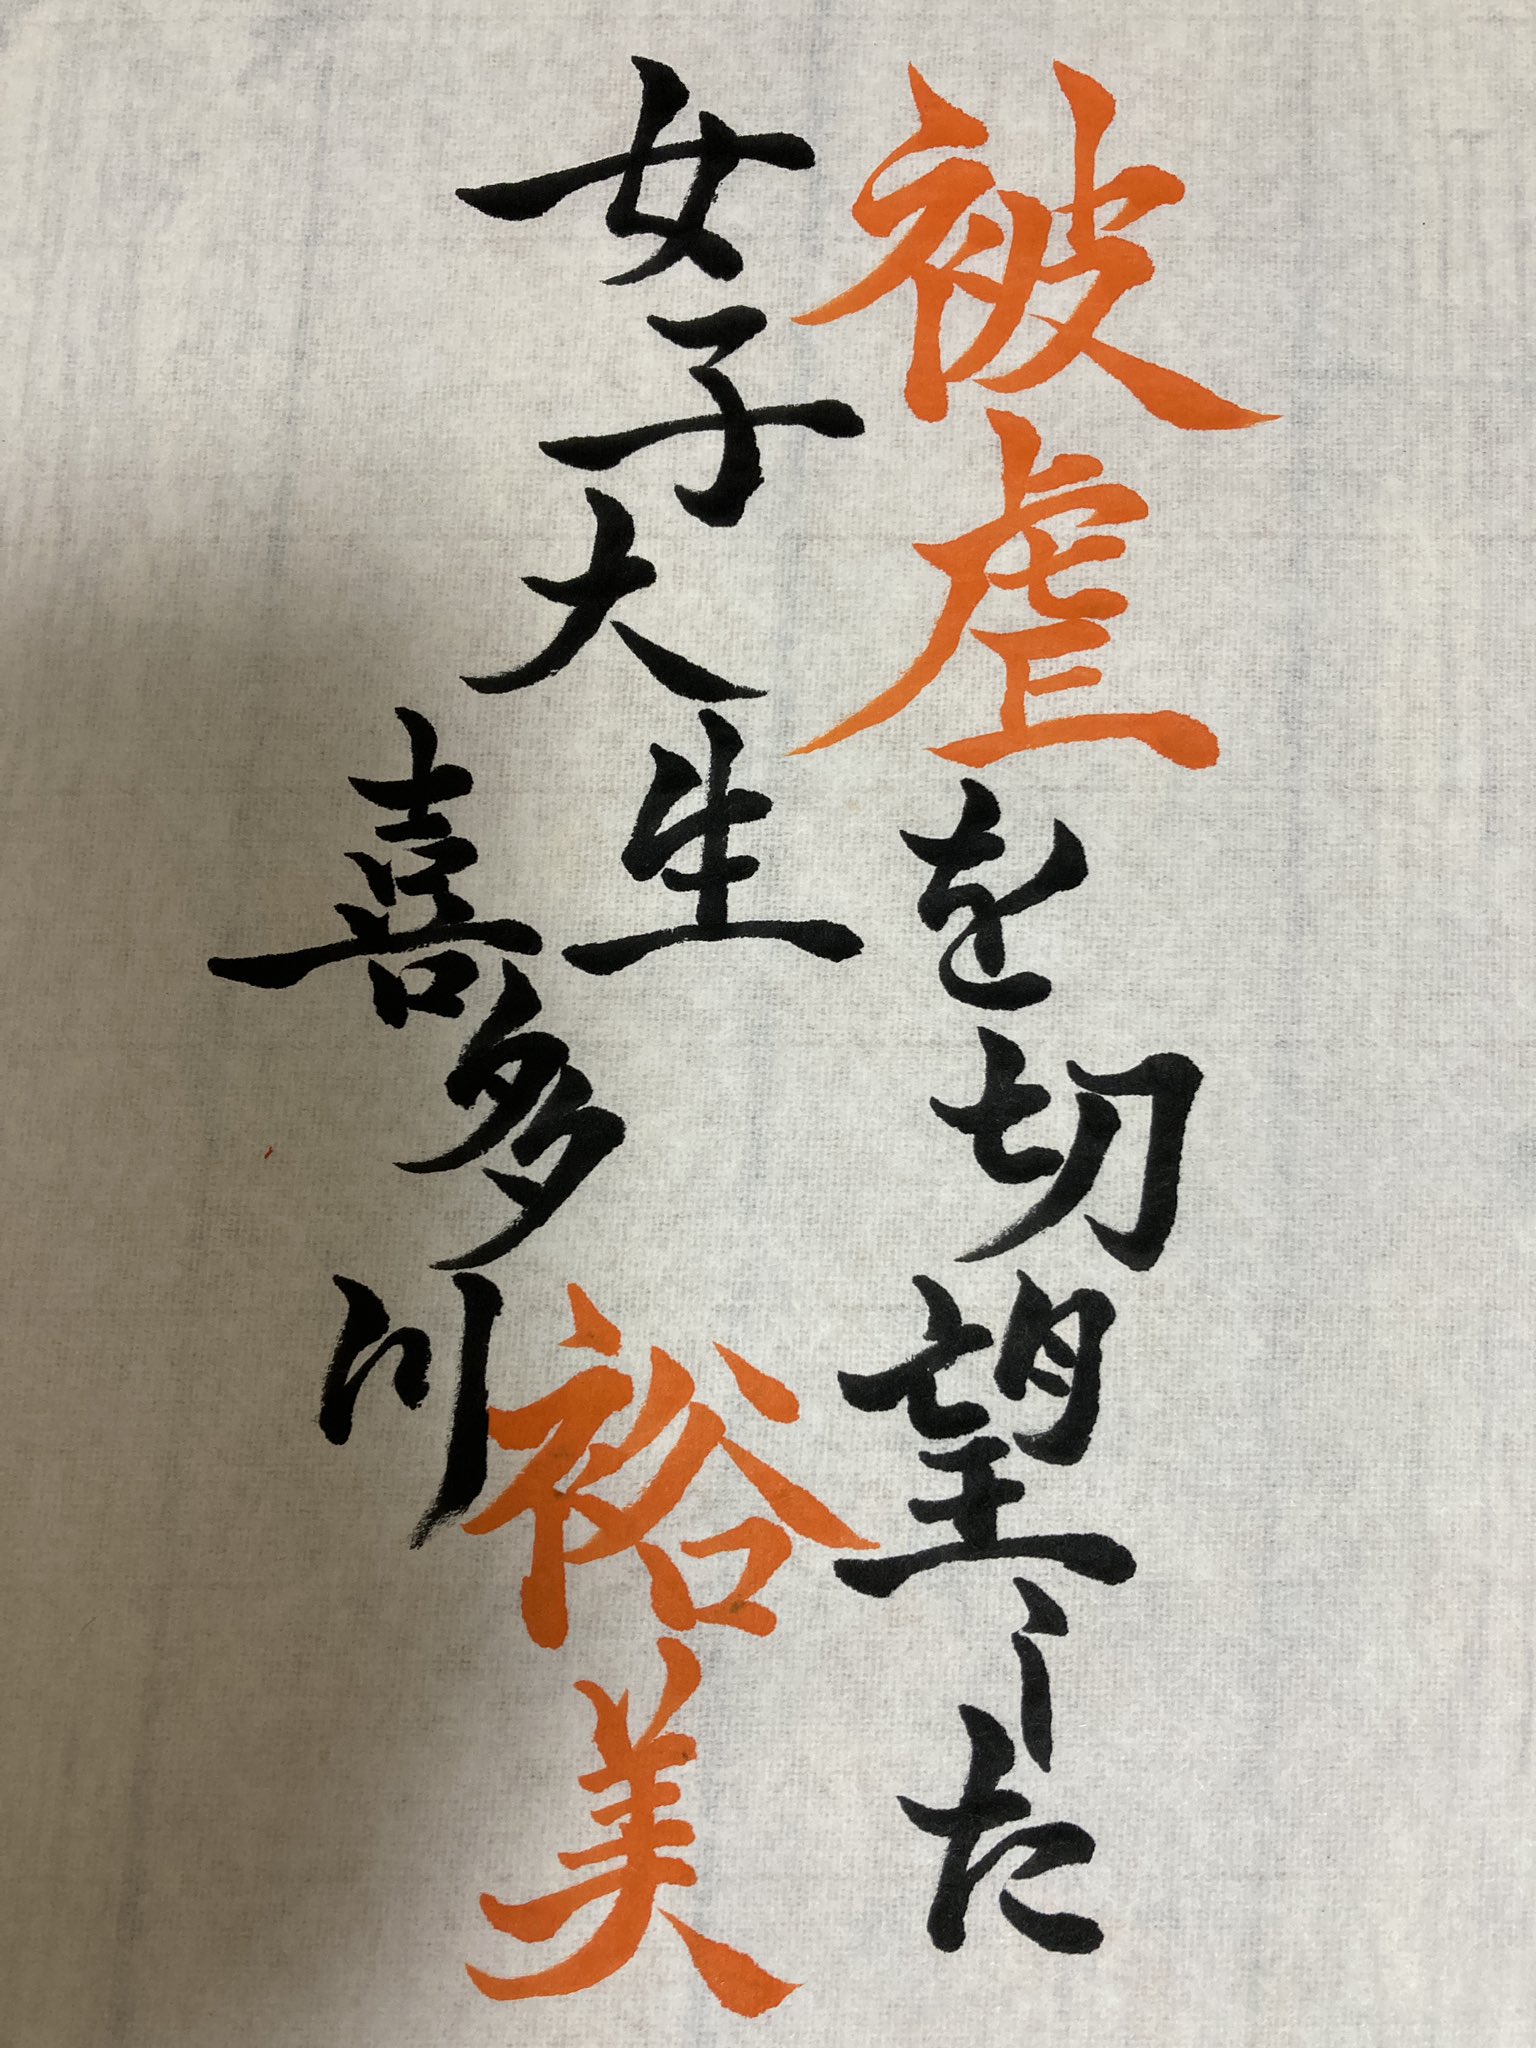 被虐を切望した
女子大生
喜多川
裕美